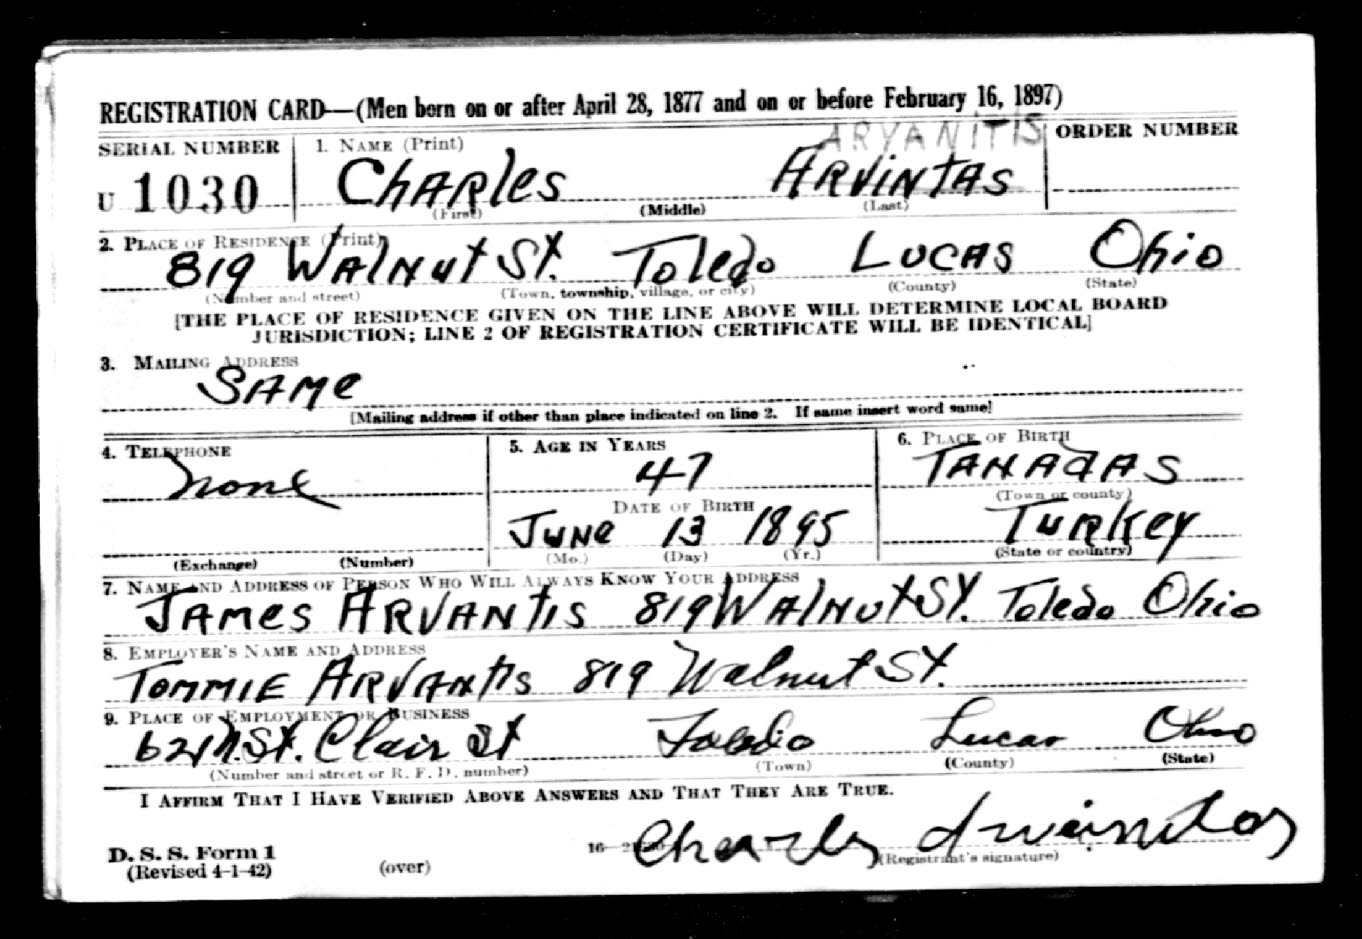 REGISTRATION CARD—(Men born on or after April 28, 1877 and on or before February 16, 1897)
SERIAL NUMBER 1. NAME (Print) ARVANITIS ORDER NUMBER
U 1030 CHARles ARVINTAS
(First) (Middle) (Last)
2. PLACE OF RESIDENCE (Print)
819 WAlNut St. Toledo LUCAS Ohio
(Number and street) (Town, township, village, or city) (County) (State)
[THE PLACE OF RESIDENCE GIVEN ON THE LINE ABOVE WILL DETERMINE LOCAL BOARD
JURISDICTION; LINE 2 OF REGISTRATION CERTIFICATE WILL BE IDENTICAL]
3. MAILING ADDRESS
SAMe
[Mailing address if other than place indicated on line 2. If same insert word same]
4. TELEPHONE 5. AGE IN YEARS 6. PLACE OF BIRTH
none 47 TANADAS
DATE OF BIRTH (Town or county)
JUNe 13 1895 TURKEY
(Exchange) (Number) (Mo.) (Day) (Yr.) (State or country)
7. NAME AND ADDRESS OF PERSON WHO WILL ALWAYS KNOW YOUR ADDRESS
JAMes ARVANtis 819 WAlNut St. Toledo Ohio
8. EMPLOYER'S NAME AND ADDRESS
TOMMIE ARVANtis 819 Walnut St.
9. PLACE OF EMPLOYMENT OR BUSINESS
621 N. St. Clair St Toledo Lucas Ohio
(Number and street or R. F. D. number) (Town) (County) (State)
I AFFIRM THAT I HAVE VERIFIED ABOVE ANSWERS AND THAT THEY ARE TRUE.
D. S. S. Form 1 16— Charles Arvintas
(Revised 4-1-42) (over) (Registrant's signature)